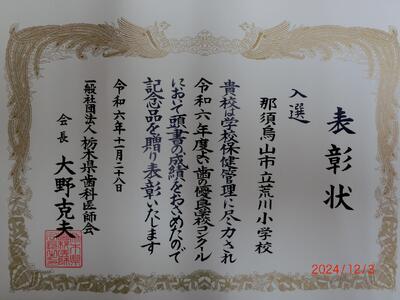 表彰状
入選
那須烏山市立荒川小学校
貴校は学校保健管理に尽力され
令和六年度よい歯の優良学校コンクール
において頭書の成績をおさめたので
記念品を贈り表彰いたします
令和六年十一月二十八日
一般社団法人 栃木県歯科医師会
会長 大野克夫
2024/12/3